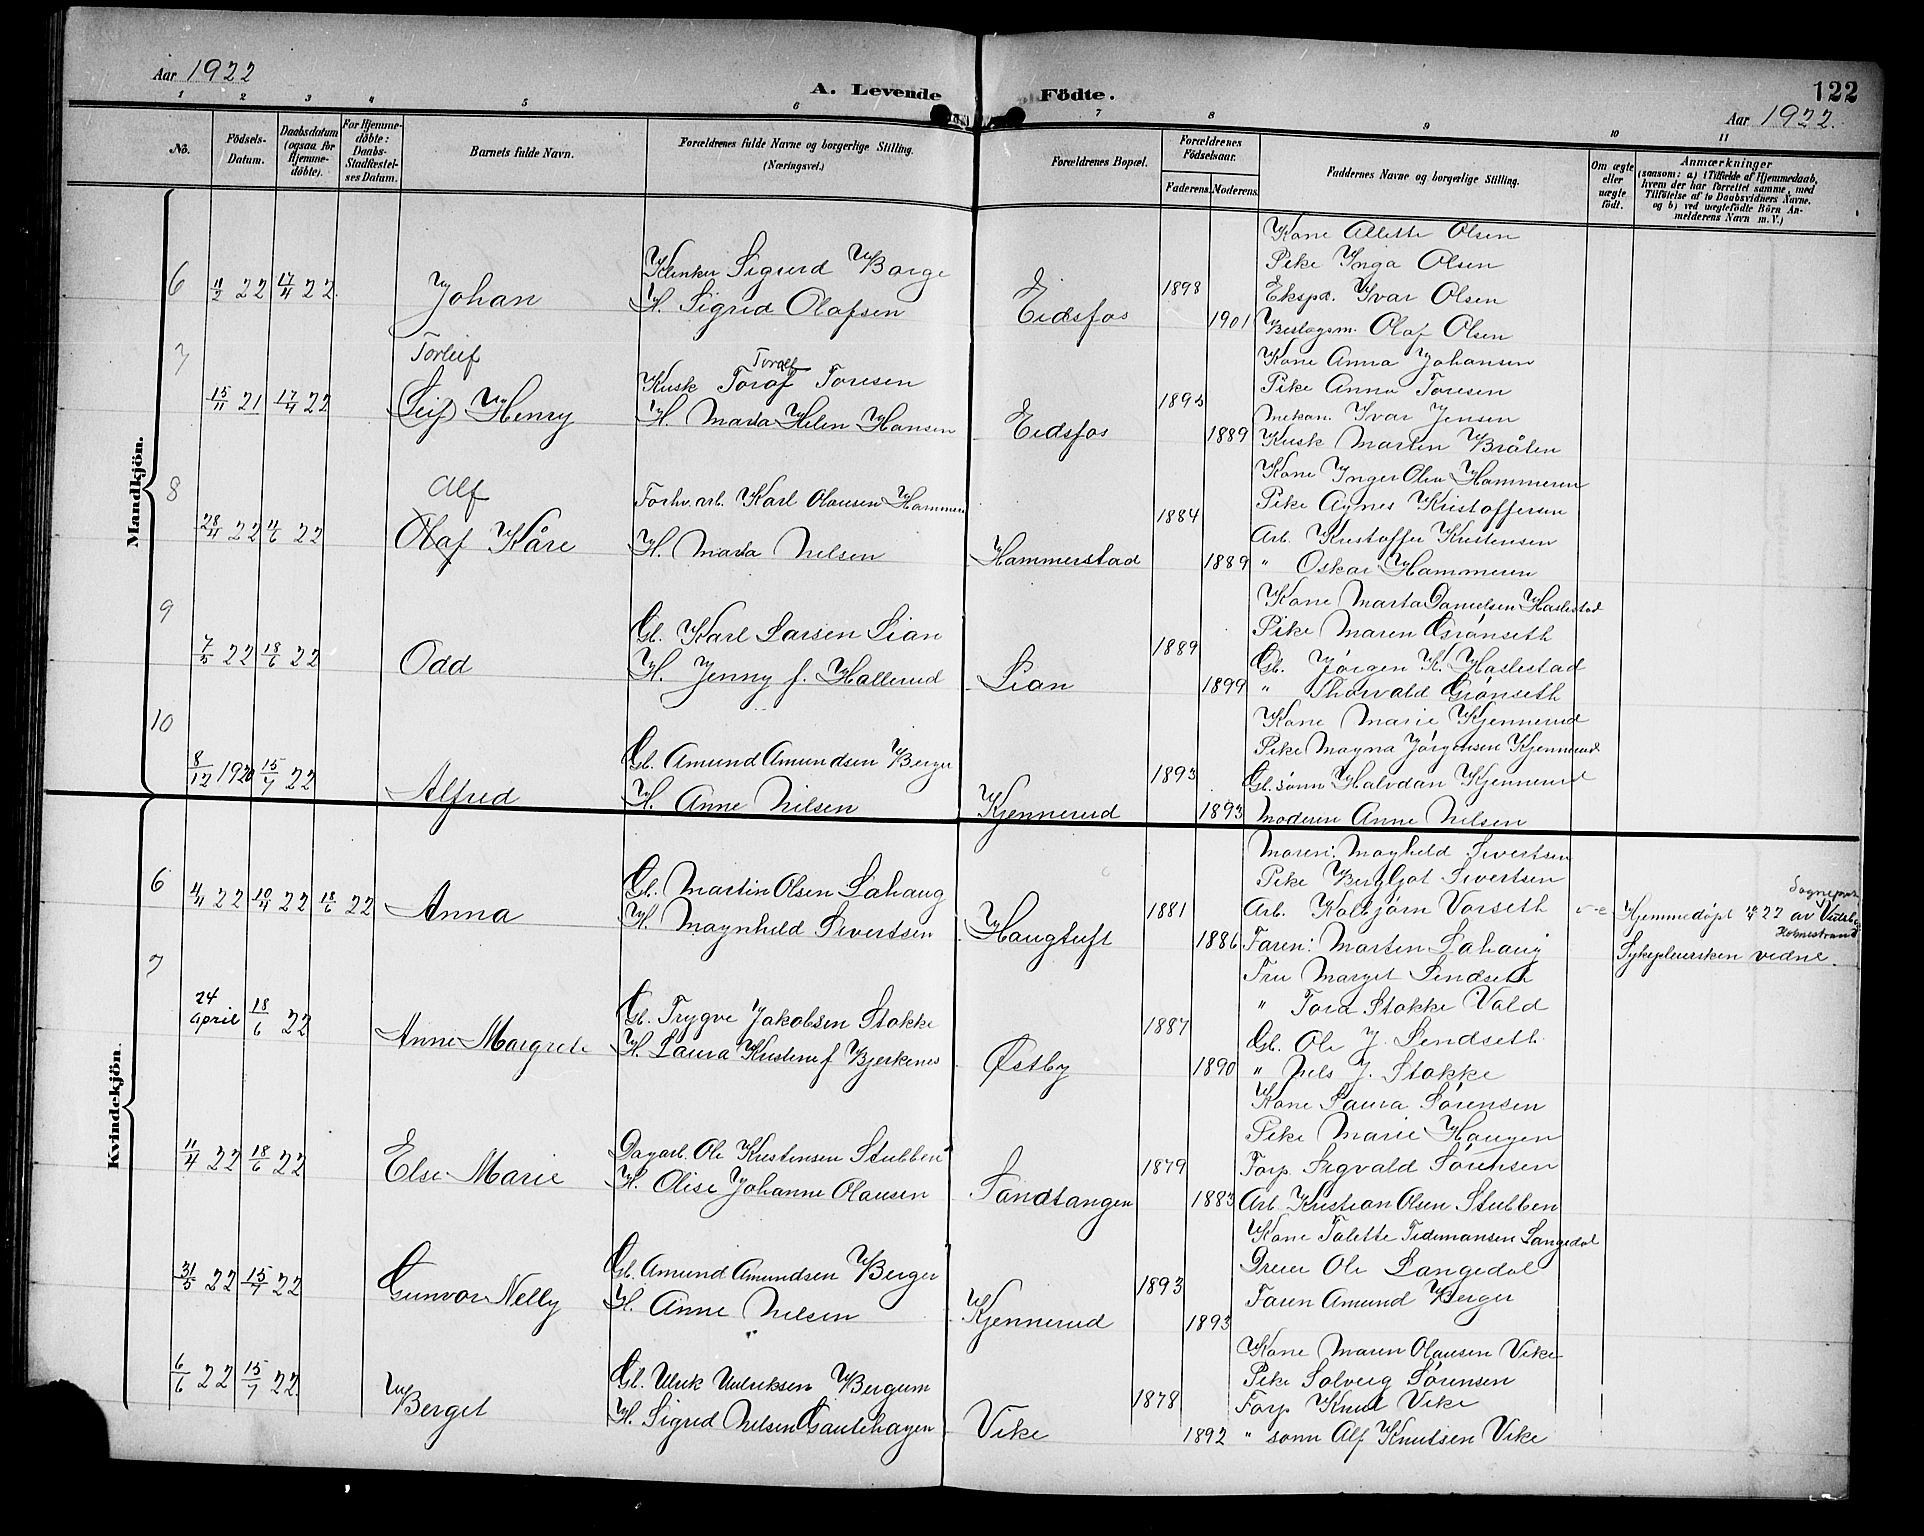 Aar 1922
A. Levende Födte.
122
Aar 1922.
1 2 3 4 5 6 7 8 9 10 11
No.
Födsels-Datum.
Daabsdatum (ogsaa for Hjemme-döbte).
For Hjemme-döbte: Daabs-Stadfæstel-ses Datum.
Barnets fulde Navn.
Forældrenes fulde Navne og borgerlige Stilling.
(Næringsvei.)
Forældrenes Bopæl.
Forældrenes Födselsaar.
Faderens. Moderens.
Faddernes Navne og borgerlige Stilling.
Om ægte eller uægte födt.
Anmærkninger
(saasom: a) i Tilfælde af Hjemmedaab,
hvem der har forrettet samme, med
Tilföielse af to Daabsvidners Navne.
og b) ved uægtefödte Börn An-
melderens Navn m. V.)
Mandkjön.
6
11/2 22 17/4 22.
Johan
Sigurd Borge
H. Sigrid Olafsen
Eidsfos
1898
1901
Kone Alette Olsen
Pike Inga Olsen
Eksped. Ivar Olsen
Beslagsm. Olaf Olsen
7
15/11 21 17/4 22
Torleif
Leif Henry
Toralf
Kusk Toraf Toresen
H. Marta Helen Hansen
Eidsfos
1889
Kone Anna Johansen
Pike Anna Toresen
Mekan. Ivar Jensen
Kusk Martin Bråten
8
28/4 22 4/6 22
Alf
Olaf Kåre
Forhv. arb. Karl Olausen Hammeren
H. Marta Nilsen
Hammerstad
1884
1889
Kone Inger Olea Hammeren
Pike Agnes Kristoffersen
Arb. Kristoffer Kristensen
" Oskar Hammeren
9
7/5 22 18/6 22
Odd
Gb. Karl Larsen Lian
H. Jenny f. Hallerud
Lian
1889
1899
Kone Marta Danielsen Haslestad
Pike Maren Grønseth
Gb. Jørgen K. Haslestad
" Thorvald Grønseth
10
8/12 1920 15/7 22
Alfred
Gb. Amund Amundsen Berger
H. Anne Nilsen
Kjennerud
1893
1893
Kone Marie Kjennerud
Pike Magna Jørgensen Kjennerud
Gb. sønn Halvdan Kjennerud
Moderen Anne Nilsen
Kvindekjön.
6
4/4 22 10/4 22 18/6 22
Anna
Gb. Martin Olsen Sahaug
H. Magnhild Sivertsen
Haugtuft
1881
1886
Moren: Magnhild Sivertsen
Pike Bergljot Sivertsen
Arb. Kolbjørn Vorseth
Faren: Martin Sahaug
Hjemmedøpt 10/4 22 av
Sogneprest
Holmestrand
Sykepleiersken vidne.
7
24 april 18/6 22
Anne Margrete
Gb. Trygve Jakobsen Stokke
H. Laura Kristine f Bjerkenes
Østby
1887
1890
Fru Margit Lindseth
" Tora Stokke Vold
Gb. Ole J. Lindseth
" Nils J. Stokke
11/4 22 18/6 22
Else Marie
Dagarb. Ole Kristensen Stubben
H. Olise Johanne Olausen
Sandtangen
1879
1883
Kone Laura Sørensen
Pike Marie Haugen
Forp. Sigvald Sørensen
Arb. Kristian Olsen Stubben
31/5 22 15/7 22
Gunvor Nelly
Gb. Amund Amundsen Berger
H. Anne Nilsen
Kjennerud
1893
1893
Kone Talette Tidemansen Langedal
Dreier Ole Langedal
Faren Amund Berger
6/6 22 15/7 22.
Berget
Gb. Ulrik Ulriksen Bergum
H. Sigrid Nilsen Gautehagen
Vike
1878
1892
Kone Maren Olausen Vike
Pike Solveig Sørensen
Forp Knut Vike
" sønn Alf Knutsen Vike